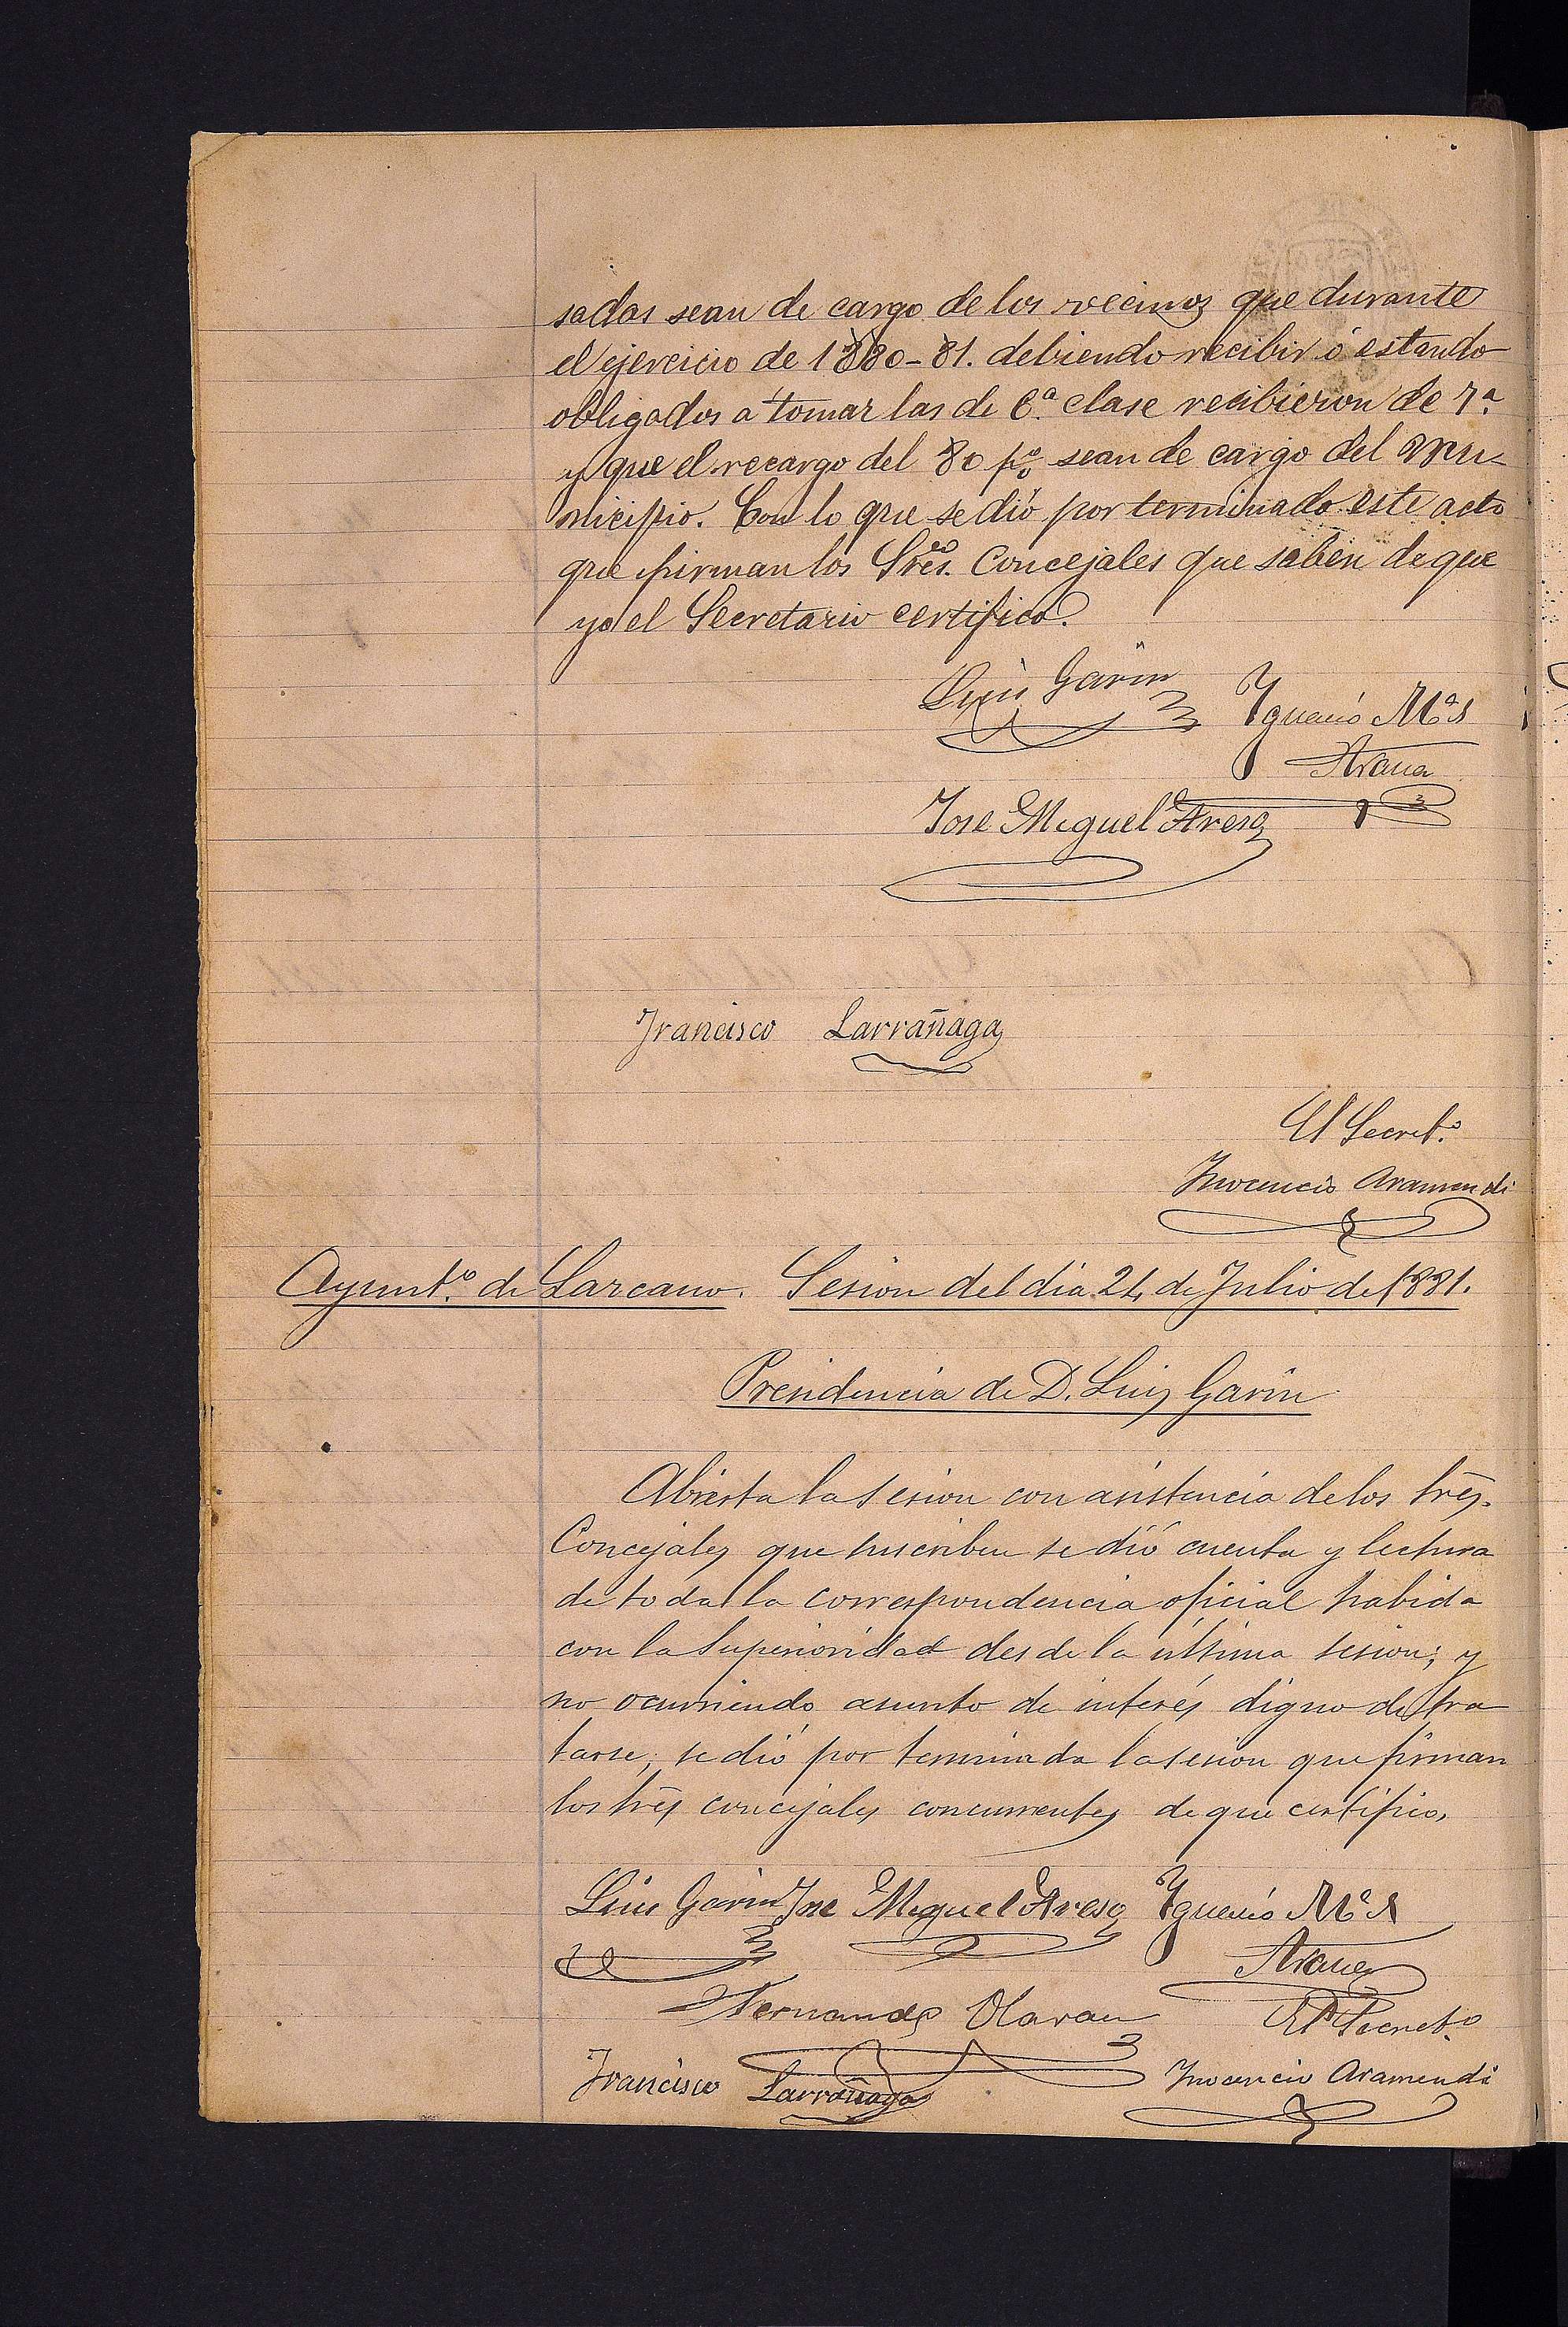 sadas sean de cargo de los vecinos que durante
el ejercicio de 1880-81. debiendo recibir ó estando
obligados a tomar las de 6.ª clase recibieron de 7.ª
y que el recargo del 80 p% sean de cargo del Mu-
nicipio. Con lo que se dió por terminado este acto
que firman los Sres. Concejales que saben de que
yo el Secretario certifico.
Luis Garin
Ygnacio M.ª
Arana
Jose Miguel Areso
Francisco Larrañaga
El Secret.º
Ynocencio Aramendi
Ayunt.º de Lazcano. Sesion del dia 24 de Julio de 1881.
Presidencia de D. Luis Garin
Abierta la sesion con asistencia de los Sres.
Concejales que suscriben se dió cuenta y lectura
de toda la correspondencia oficial habida
con la Superioridad desde la última sesion; y
no ocurriendo asunto de interés digno de tra
tarse, se dió por terminada la sesion que firman
los Sres concejales concurrentes de que certifico,
Luis Garin Jose Miguel Areso Ygnacio M.ª
Arana
Fernando Olaran El Secret.º
Francisco Larrañaga Ynocencio Aramendi